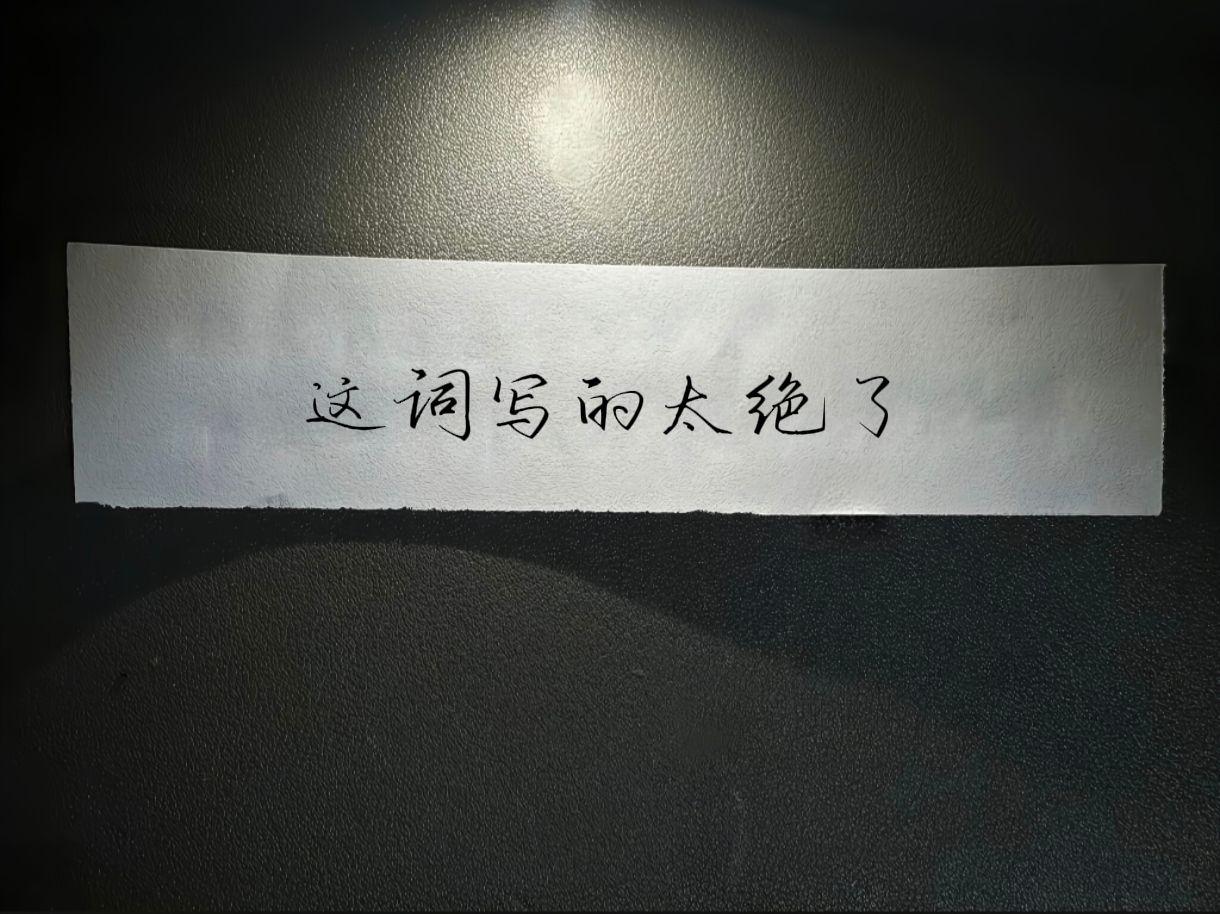 这词写的太绝了